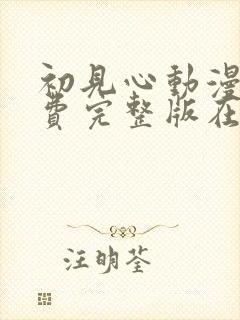 初見心動漫
費完整版在
汪明荃